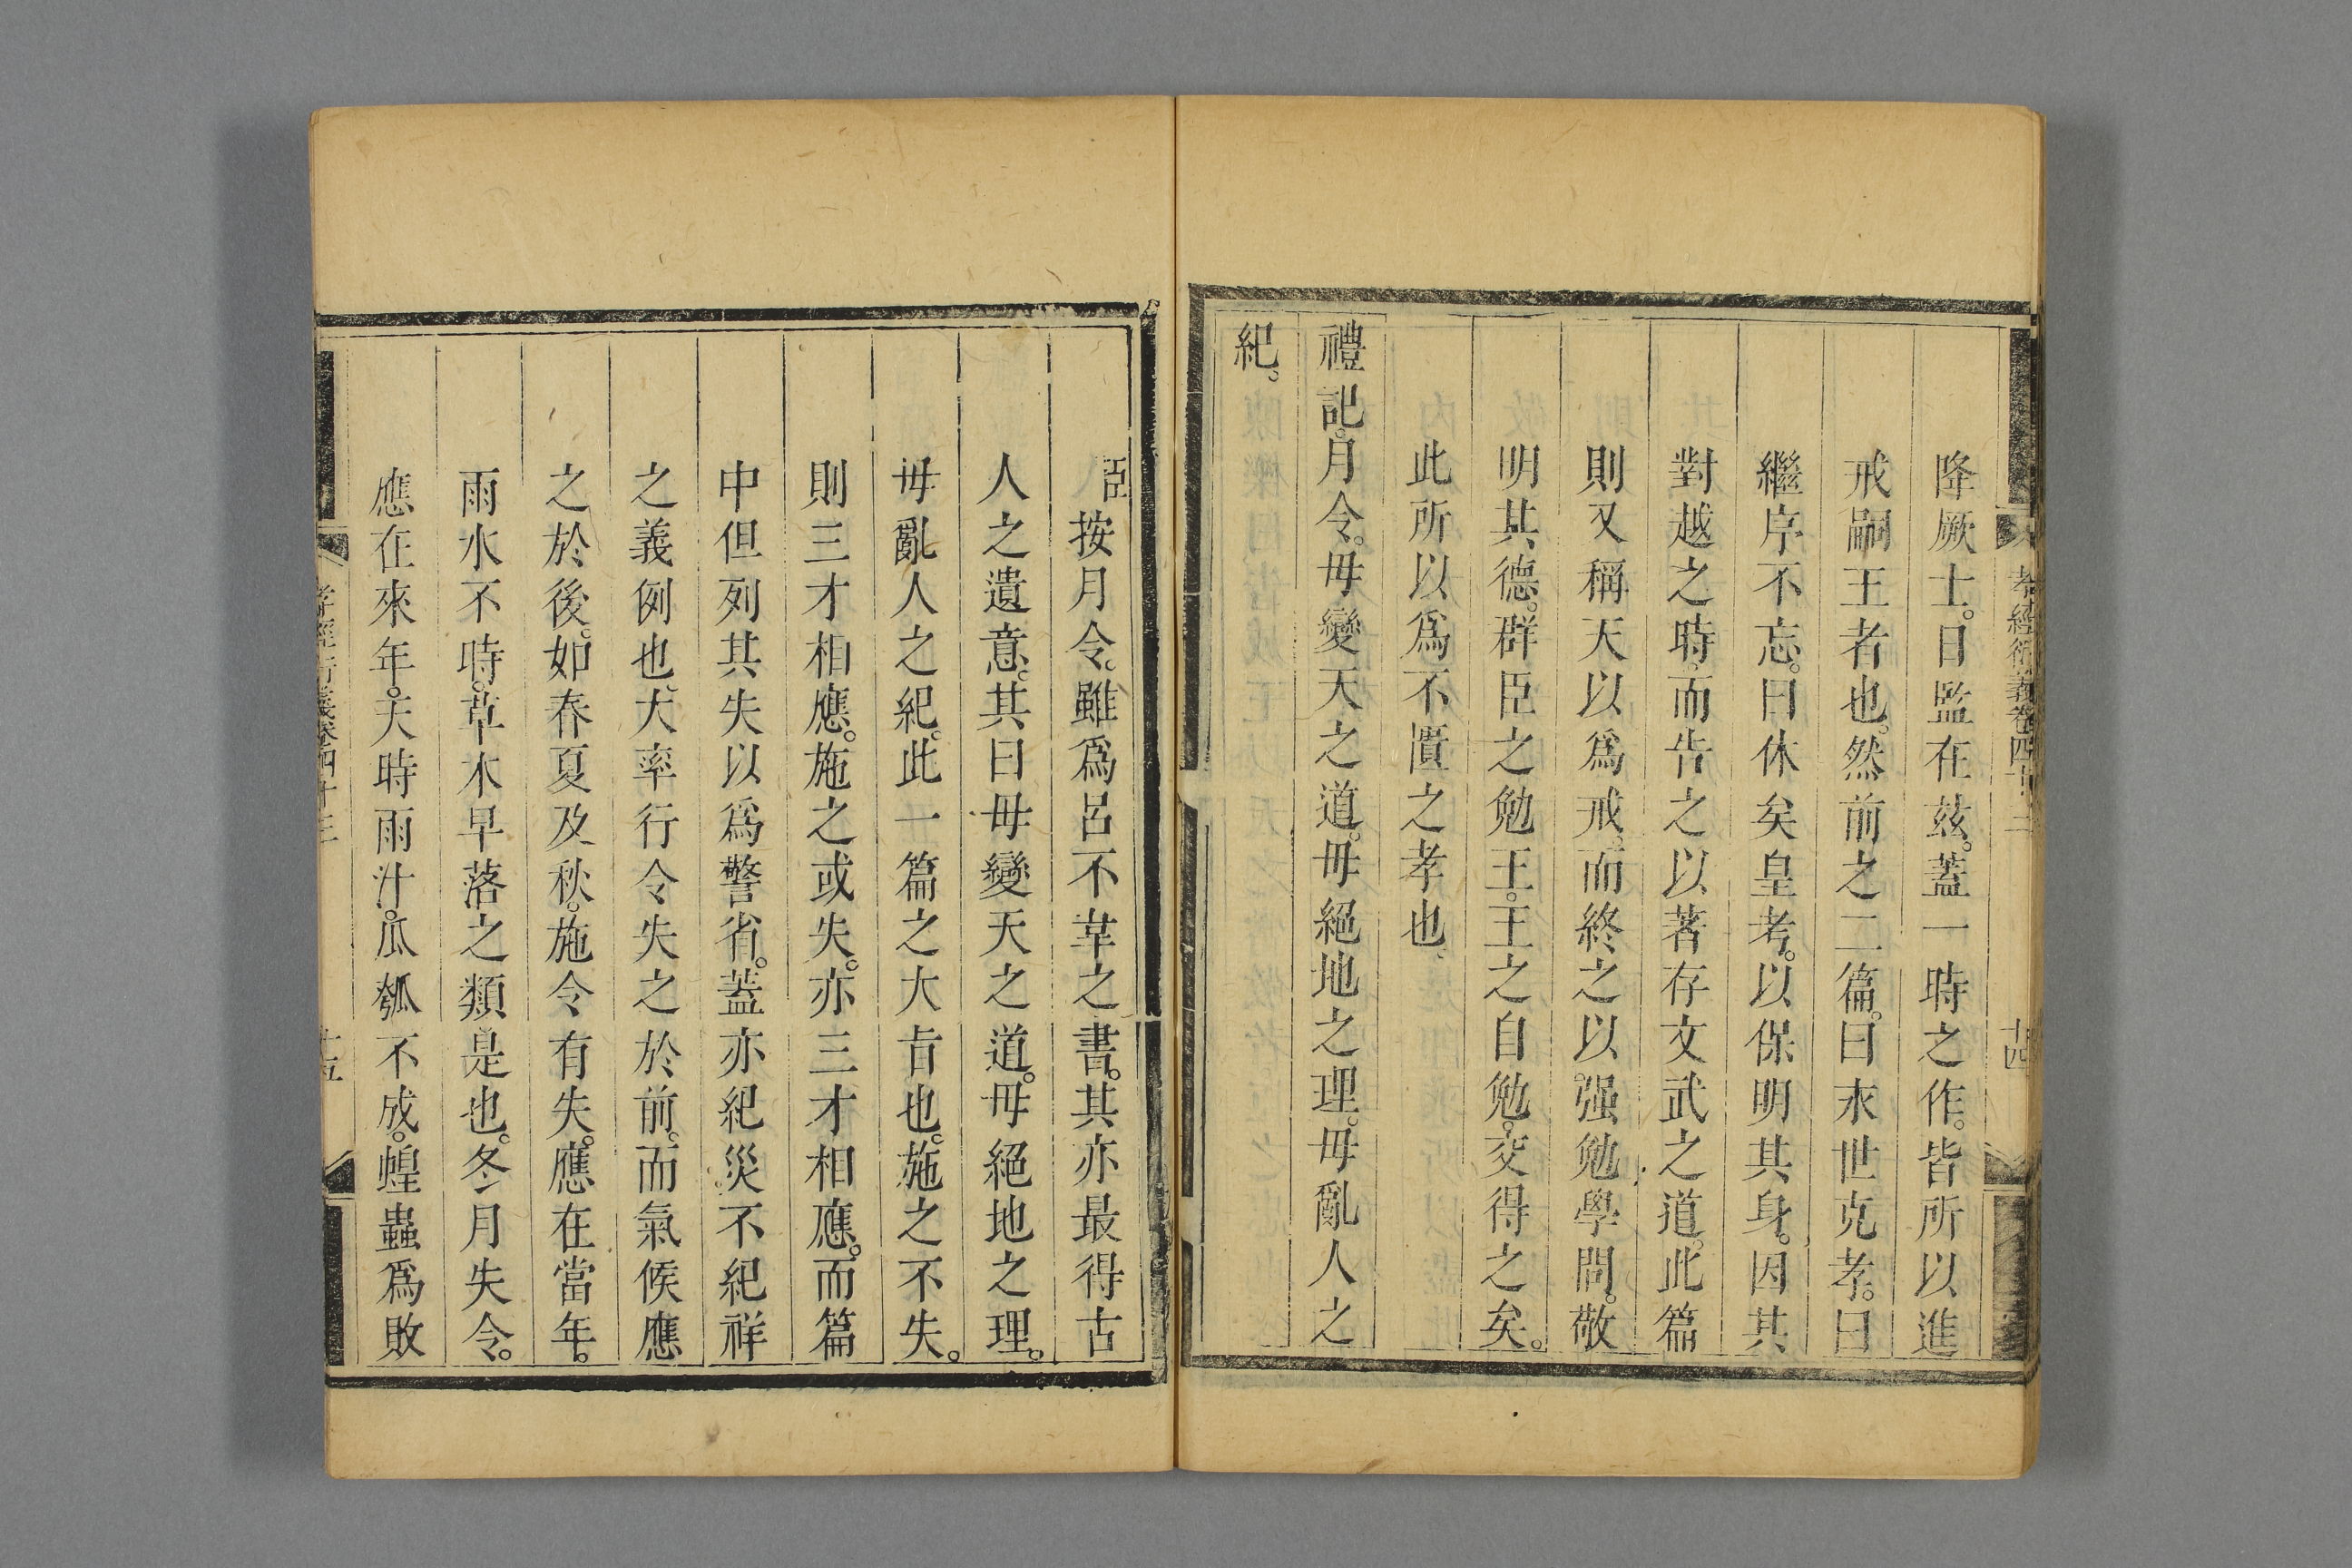 孝經衍義卷四十三
十四
降厥士。日監在茲。蓋一時之作。皆所以進
戒嗣王者也。然前之二篇。曰永世克孝。曰
繼序不忘。曰休矣皇考。以保明其身。因其
對越之時。而告之以著存文武之道。此篇
則又稱天以爲戒。而終之以强勉學問。敬
明其德。群臣之勉王。王之自勉。交得之矣。
此所以爲不匱之孝也。
禮記。月令。毋變天之道。毋絕地之理。毋亂人之
紀。
臣按月令。雖爲呂不韋之書。其亦最得古
人之遺意。其曰毋變天之道。毋絕地之理。
毋亂人之紀。此一篇之大旨也。施之不失。
則三才相應。施之或失。亦三才相應。而篇
中但列其失以爲警省。蓋亦紀災不紀祥
之義例也。大率行令失之於前。而氣候應
之於後。如春夏及秋。施令有失。應在當年。
雨水不時。草木早落之類是也。冬月失令。
應在來年。天時雨汁。瓜瓠不成。蝗蟲爲敗
孝經衍義卷四十三
十五